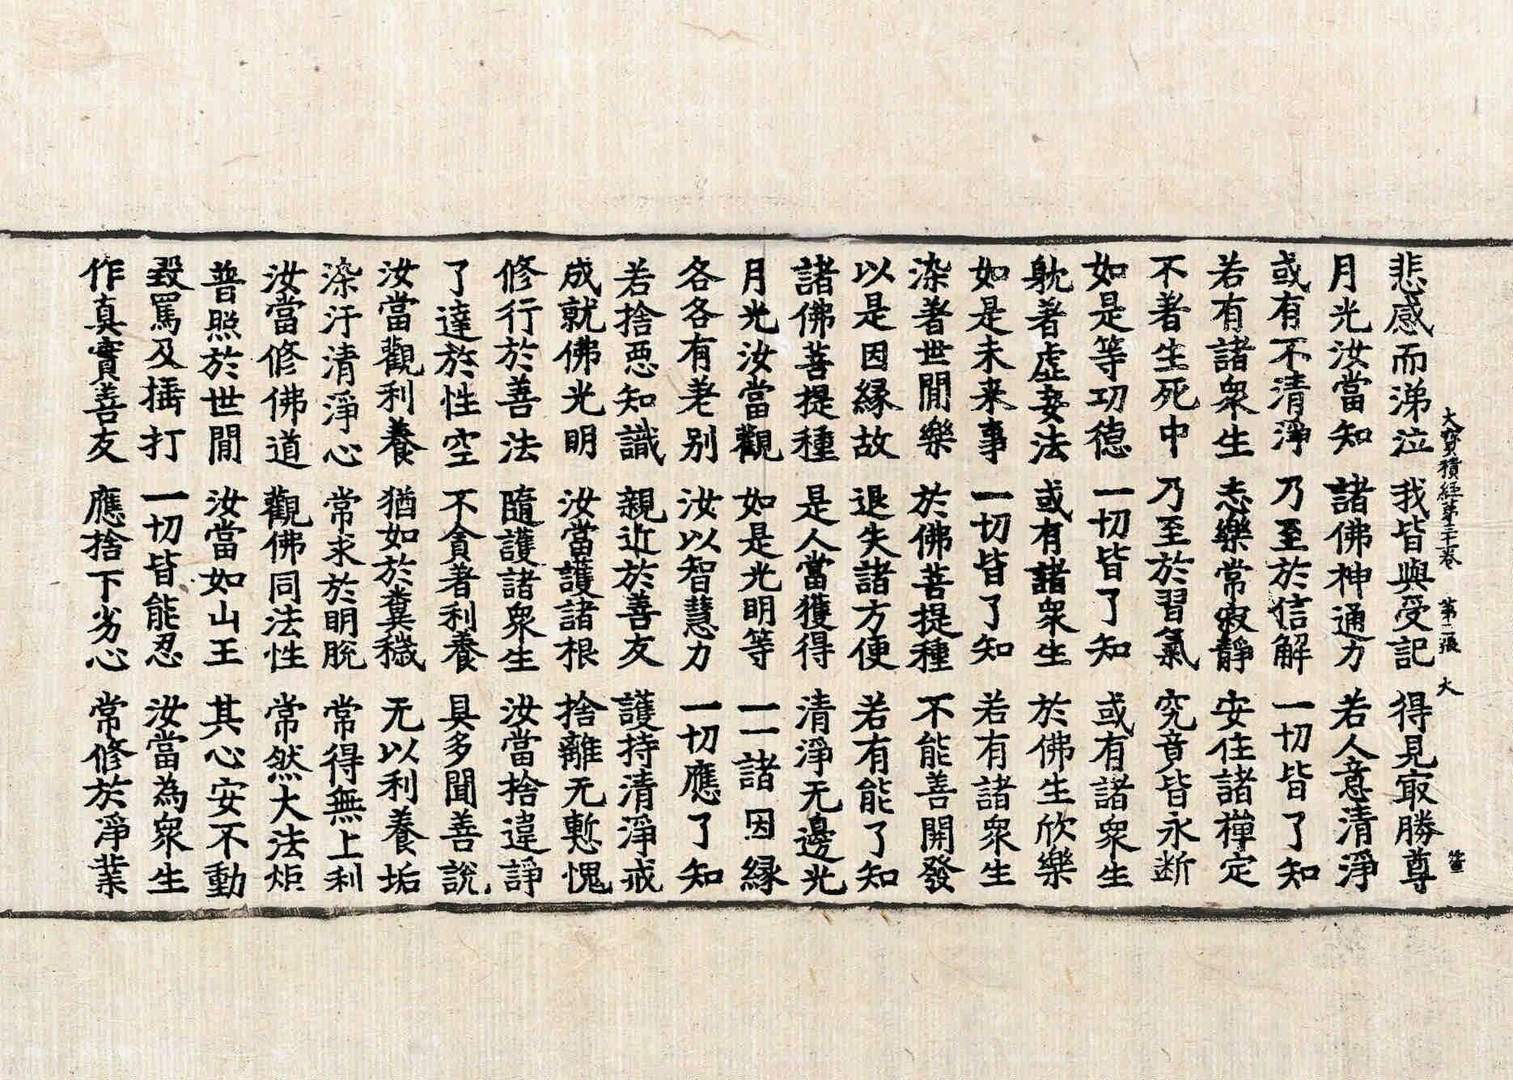 大寶積經第三十卷 第二張 大
悲感而涕泣 我皆與受記 得見㝡勝尊
月光汝當知 諸佛神通力 若人意清淨
或有不清淨 乃至於信解 一切皆了知
若有諸衆生 志樂常寂靜 安住諸禪定
不著生死中 乃至於習氣 究竟皆永断
如是等功德 一切皆了知 或有諸衆生
躭著虛妄法 或有諸衆生 於佛生欣樂
如是未来事 一切皆了知 若有諸衆生
染著世閒樂 於佛菩提種 不能善開發
以是因緣故 退失諸方便 若有能了知
諸佛菩提種 是人當獲得 清淨无邊光
月光汝當觀 如是光明等 一一諸因緣
各各有差别 汝以智慧力 一切應了知
若捨惡知識 親近於善友 護持清淨戒
成就佛光明 汝當護諸根 捨離无慙愧
修行於善法 隨護諸衆生 汝當捨違諍
了達於性空 不貪著利養 具多聞善說
汝當觀利養 猶如於糞穢 无以利養垢
染汙清淨心 常求於明脫 常得無上利
汝當修佛道 觀佛同法性 常然大法炬
普照於世閒 汝當如山王 其心安不動
毀罵及捶打 一切皆能忍 汝當為衆生
作真實善友 應捨下劣心 常修於淨業